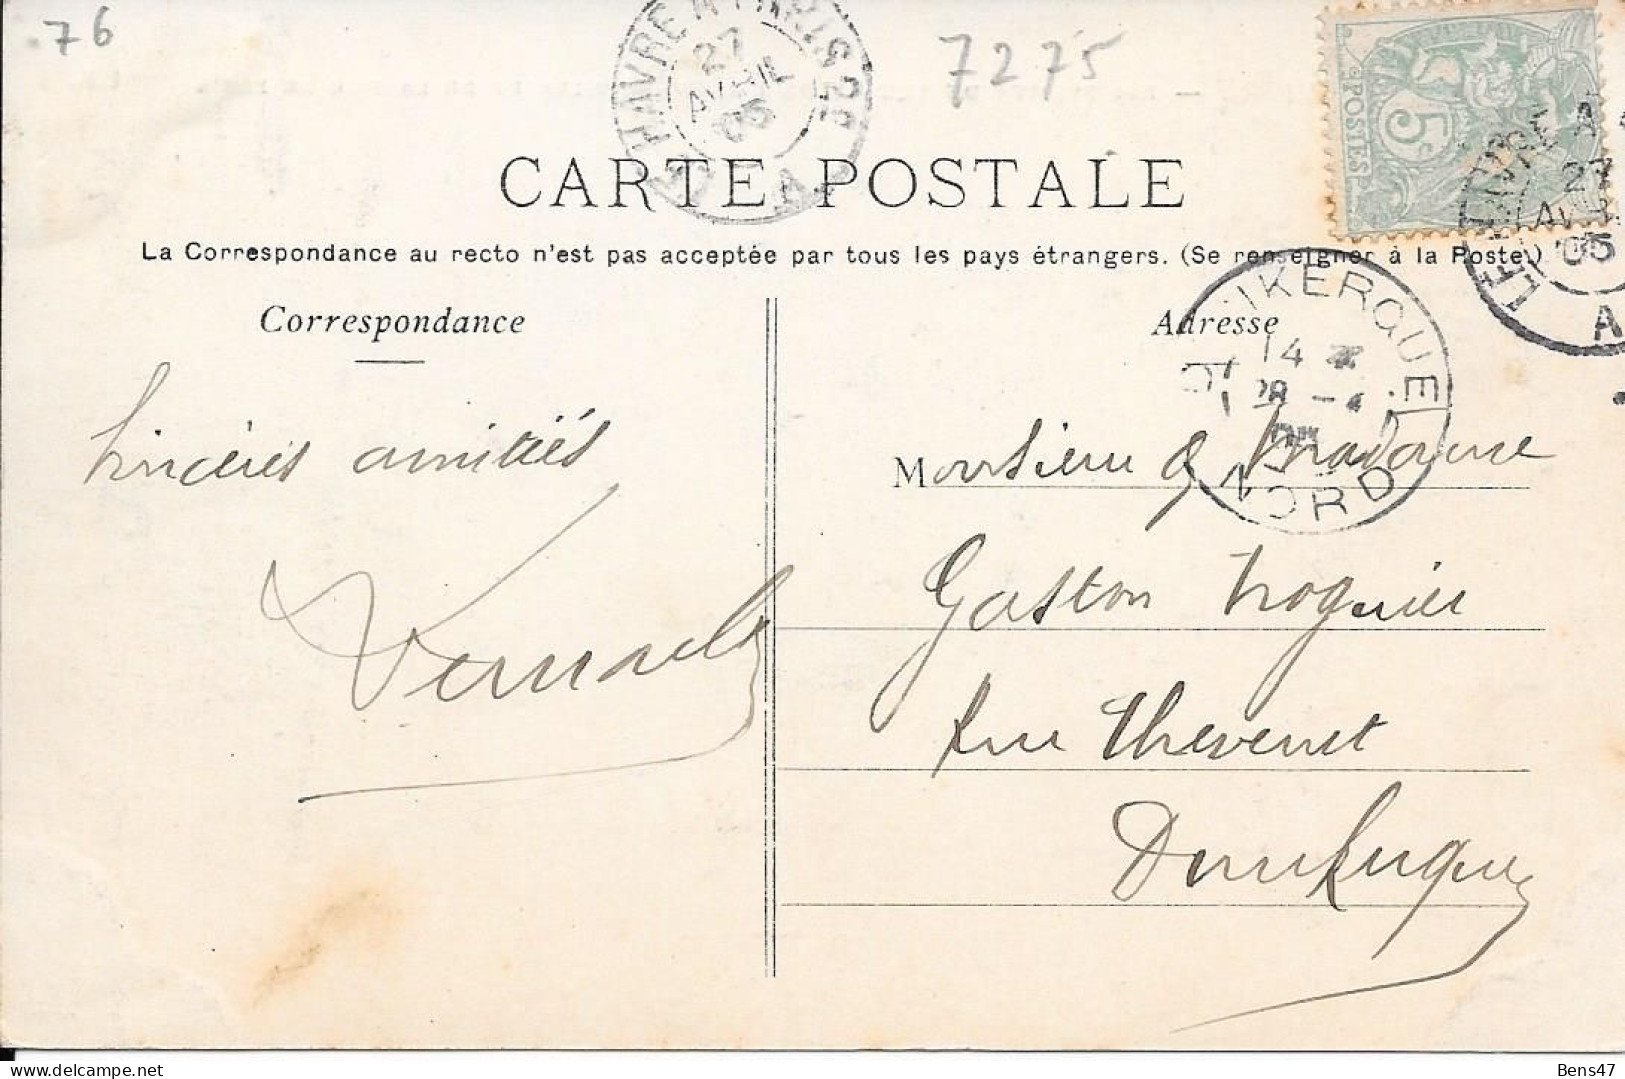 76
LE HAVRE A PARIS 2°
27
AVRIL
05
7275
5
POSTES
27
AVRIL
05
LE HAVRE A
A
CARTE POSTALE
La Correspondance au recto n'est pas acceptée par tous les pays étrangers. (Se renseigner à la Poste.)
Correspondance
Adresse
DUNKERQUE
14
28 - 4
05
NORD
Sincères amitiés
Monsieur & Madame
Gaston
Rue Thevenet
Dunkerque
Bens47